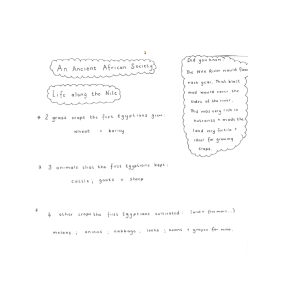 An Ancient African Society
Life along the Nile
* 2 great crops the first Egyptians grew:
wheat + barley
* 3 animals that the first Egyptians kept:
cattle, goats + sheep
* 4 other crops the first Egyptians cultivated:
melons, onions, cabbage, leeks, beans + grapes for wine.
Did you know?
The Nile
mud would cover the
sides of the river.
This was very rich in
nutrients + made the
land very fertile +
ideal for growing
crops.